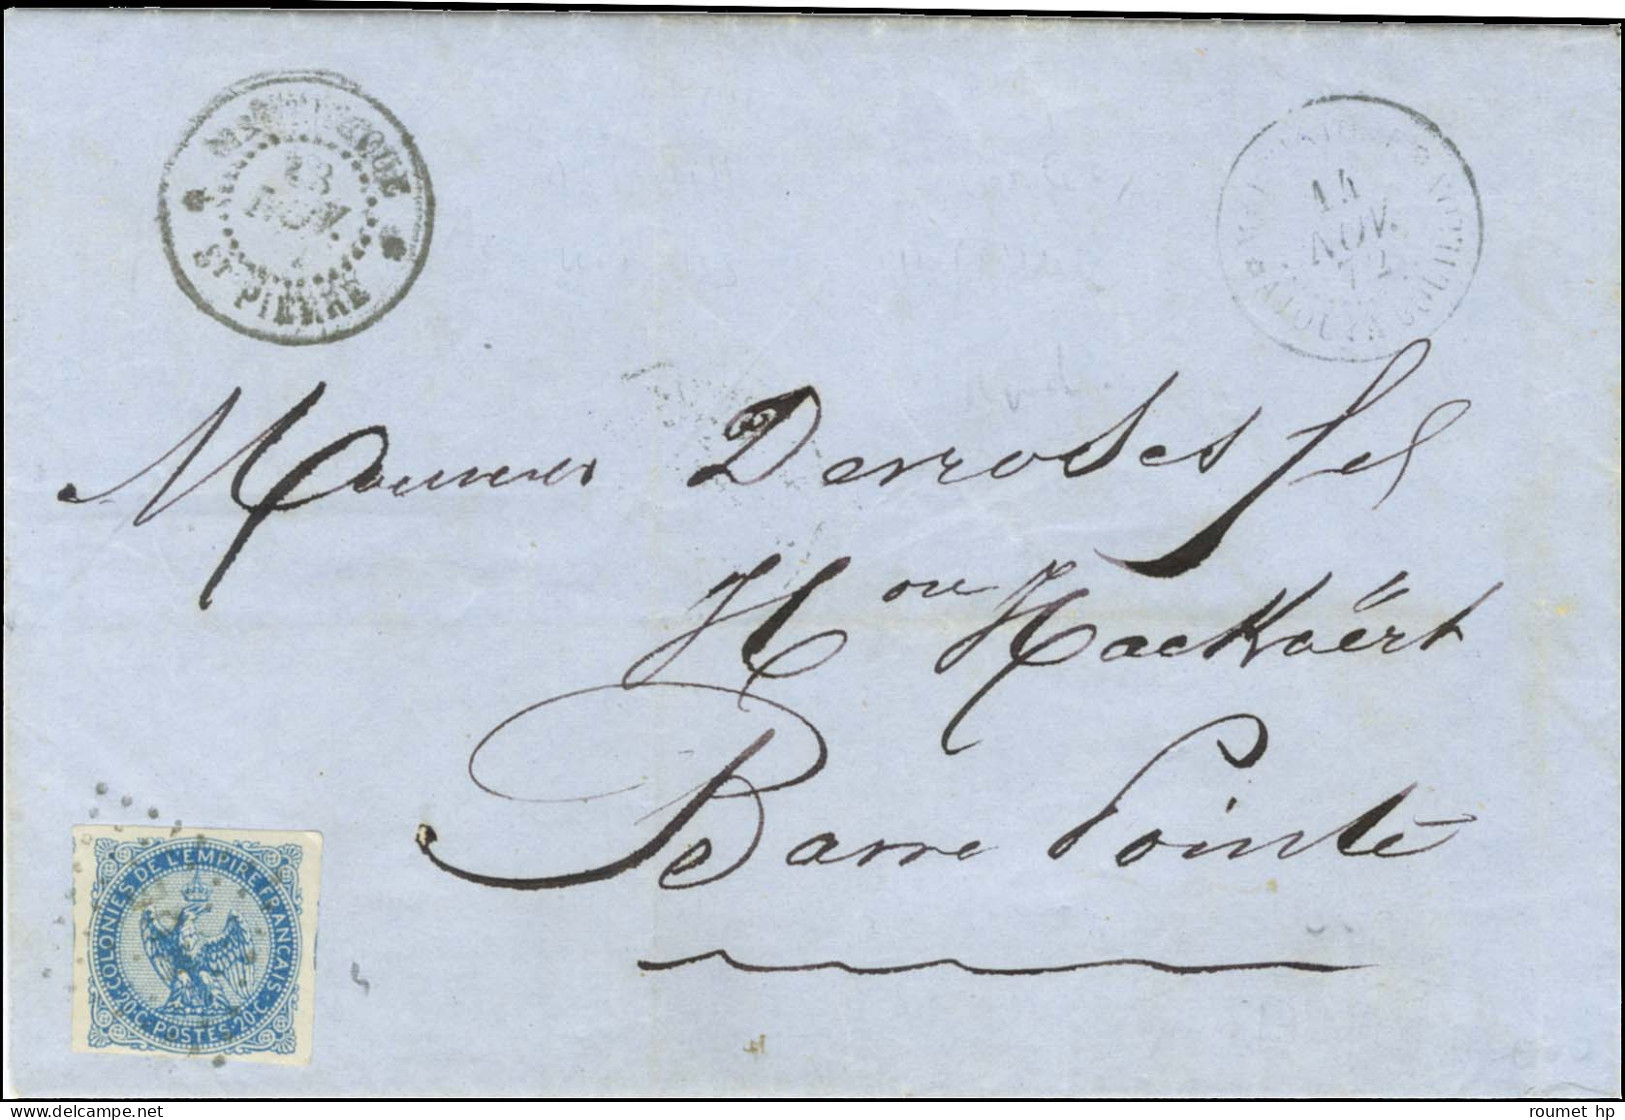 MARTINIQUE
13
NOV.
ST PIERRE
14
NOV.
72
Monsieur Desroses fils
Hon Hackaërt
Basse Pointe
COLONIES DE L'EMPIRE FRANÇAIS
20·C·POSTES·20·C
roumet hp